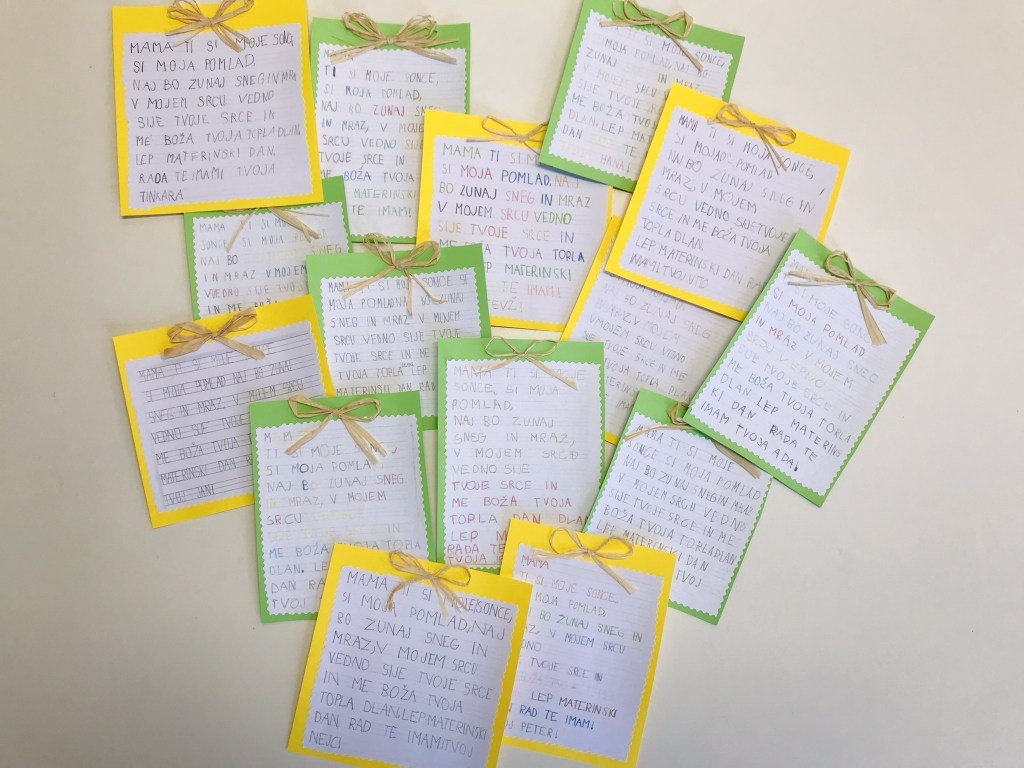 MAMA TI SI MOJE SONC
SI MOJA POMLAD.
NAJ BO ZUNAJ SNEG IN MRA
V MOJEM SRCU VEDNO
SIJE TVOJE SRCE IN
ME BOŽA TVOJA TOPLA DLAN.
LEP MATERINSKI DAN.
RADA TE IMAM! TVOJA
TINKARA
TI SI MOJE SONCE,
SI MOJA POMLAD,
NAJ BO ZUNAJ SNEG
IN MRAZ, V MOJE
SRCU VEDNO SIJE
TVOJE SRCE IN
ME BOŽA TVOJA
MATERINSKI
TE IMAM!
TI SI MOJE
MOJA POMLAD, NAJ BO
ZUNAJ IN MRAZ,
V MOJEM SRCU
SIJE TVOJE
ME BOŽA TVOJA
DLAN. LEP MATERINSKI
DAN TE
HANA!
MAMA TI SI M
SI MOJA POMLAD, NAJ
BO ZUNAJ SNEG IN MRAZ
V MOJEM SRCU VEDNO
SIJE TVOJE SRCE IN
ME TVOJA TOPLA
LEP MATERINSKI
TE IMAM!
MAMA TI SI MOJA SONCE,
SI MOJA POMLAD,
BO ZUNAJ SNEG IN
MRAZ, V MOJEM
SRCU VEDNO SIJE TVOJE
SRCE IN ME BOŽA TVOJA
TOPLA DLAN.
LEP MATERINSKI DAN RA
MAMA TI SI
SONCE, SI MOJA POM
NAJ BO
IN MRAZ V MOJEM
VEDNO SIJE
IN ME BOŽ
SONCE SI
MOJA POMLAD NAJ BO ZUNAJ
SNEG IN MRAZ V MOJEM
SRCU VEDNO SIJE TVOJE
TVOJE SRCE IN ME
TVOJA TOPLA DLAN
MATERINSKI DAN RAD
NAJ BO ZUNAJ SNEG
IN MRAZ V MOJEM
V MOJEM SRCU VEDNO
SIJE TVOJE SRCE IN ME
TOPLA
LEP MATERINSKI
SI MOJE SONCE
SI MOJA POMLAD
NAJ BO ZUNAJ SNEG
IN MRAZ V MOJEM
SRCU VEDNO
SIJE TVOJE SRCE IN
ME BOŽA TVOJA TOPLA
DLAN LEP MATERINS
KI DAN RADA TE
IMAM TVOJA ADA!
MAMA TI SI MOJE
SI MOJA POMLAD NAJ BO ZUNAJ
SNEG IN MRAZ V MOJEM SRCU
VEDNO SIJE TVOJE
ME BOŽA TVOJA
MATERINSKI DAN
TVOJ JAN
TI SI MOJE
SI MOJA POMLAD,
NAJ BO ZUNAJ SNEG
IN MRAZ, V MOJEM
SRCU
SIJE TVOJE SRCE IN
ME BOŽA TVOJA TOPLA
DLAN. LEP
DAN RA
TVOJ
MAMA TI SI MOJE
SONCE, SI MOJA
POMLAD,
NAJ BO ZUNAJ
SNEG IN MRAZ,
V MOJEM SRCU
VEDNO SIJE
TVOJE SRCE IN
ME BOŽA TVOJA
TOPLA DAN DLAN
LEP M
RADA TE
TVOJA
MAMA TI SI MOJE
SONCE SI MOJA POMLAD
NAJ BO ZUNAJ SNEG IN MRAZ
V MOJEM SRCU VEDNO
SIJE TVOJE SRCE IN ME
BOŠA TVOJA TOPLA DLAN
LEP MATERINSKI DAN
TE TVOJ
MAMA TI SI MOJE SONCE,
SI MOJA POMLAD, NAJ
BO ZUNAJ SNEG IN
MRAZ, V MOJEM SRCU
VEDNO SIJE TVOJE SRCE
IN ME BOŽA TVOJA
TOPLA DLAN. LEP MATERINSKI
DAN RAD TE IMAM! TVOJ
NEJC!
MAMA
TI SI MOJE SONCE,
MOJA POMLAD,
BO ZUNAJ SNEG IN
Z, V MOJEM SRCU
DNO
TVOJE SRCE IN
LEP MATERINSKI
RAD TE IMAM!
PETER!